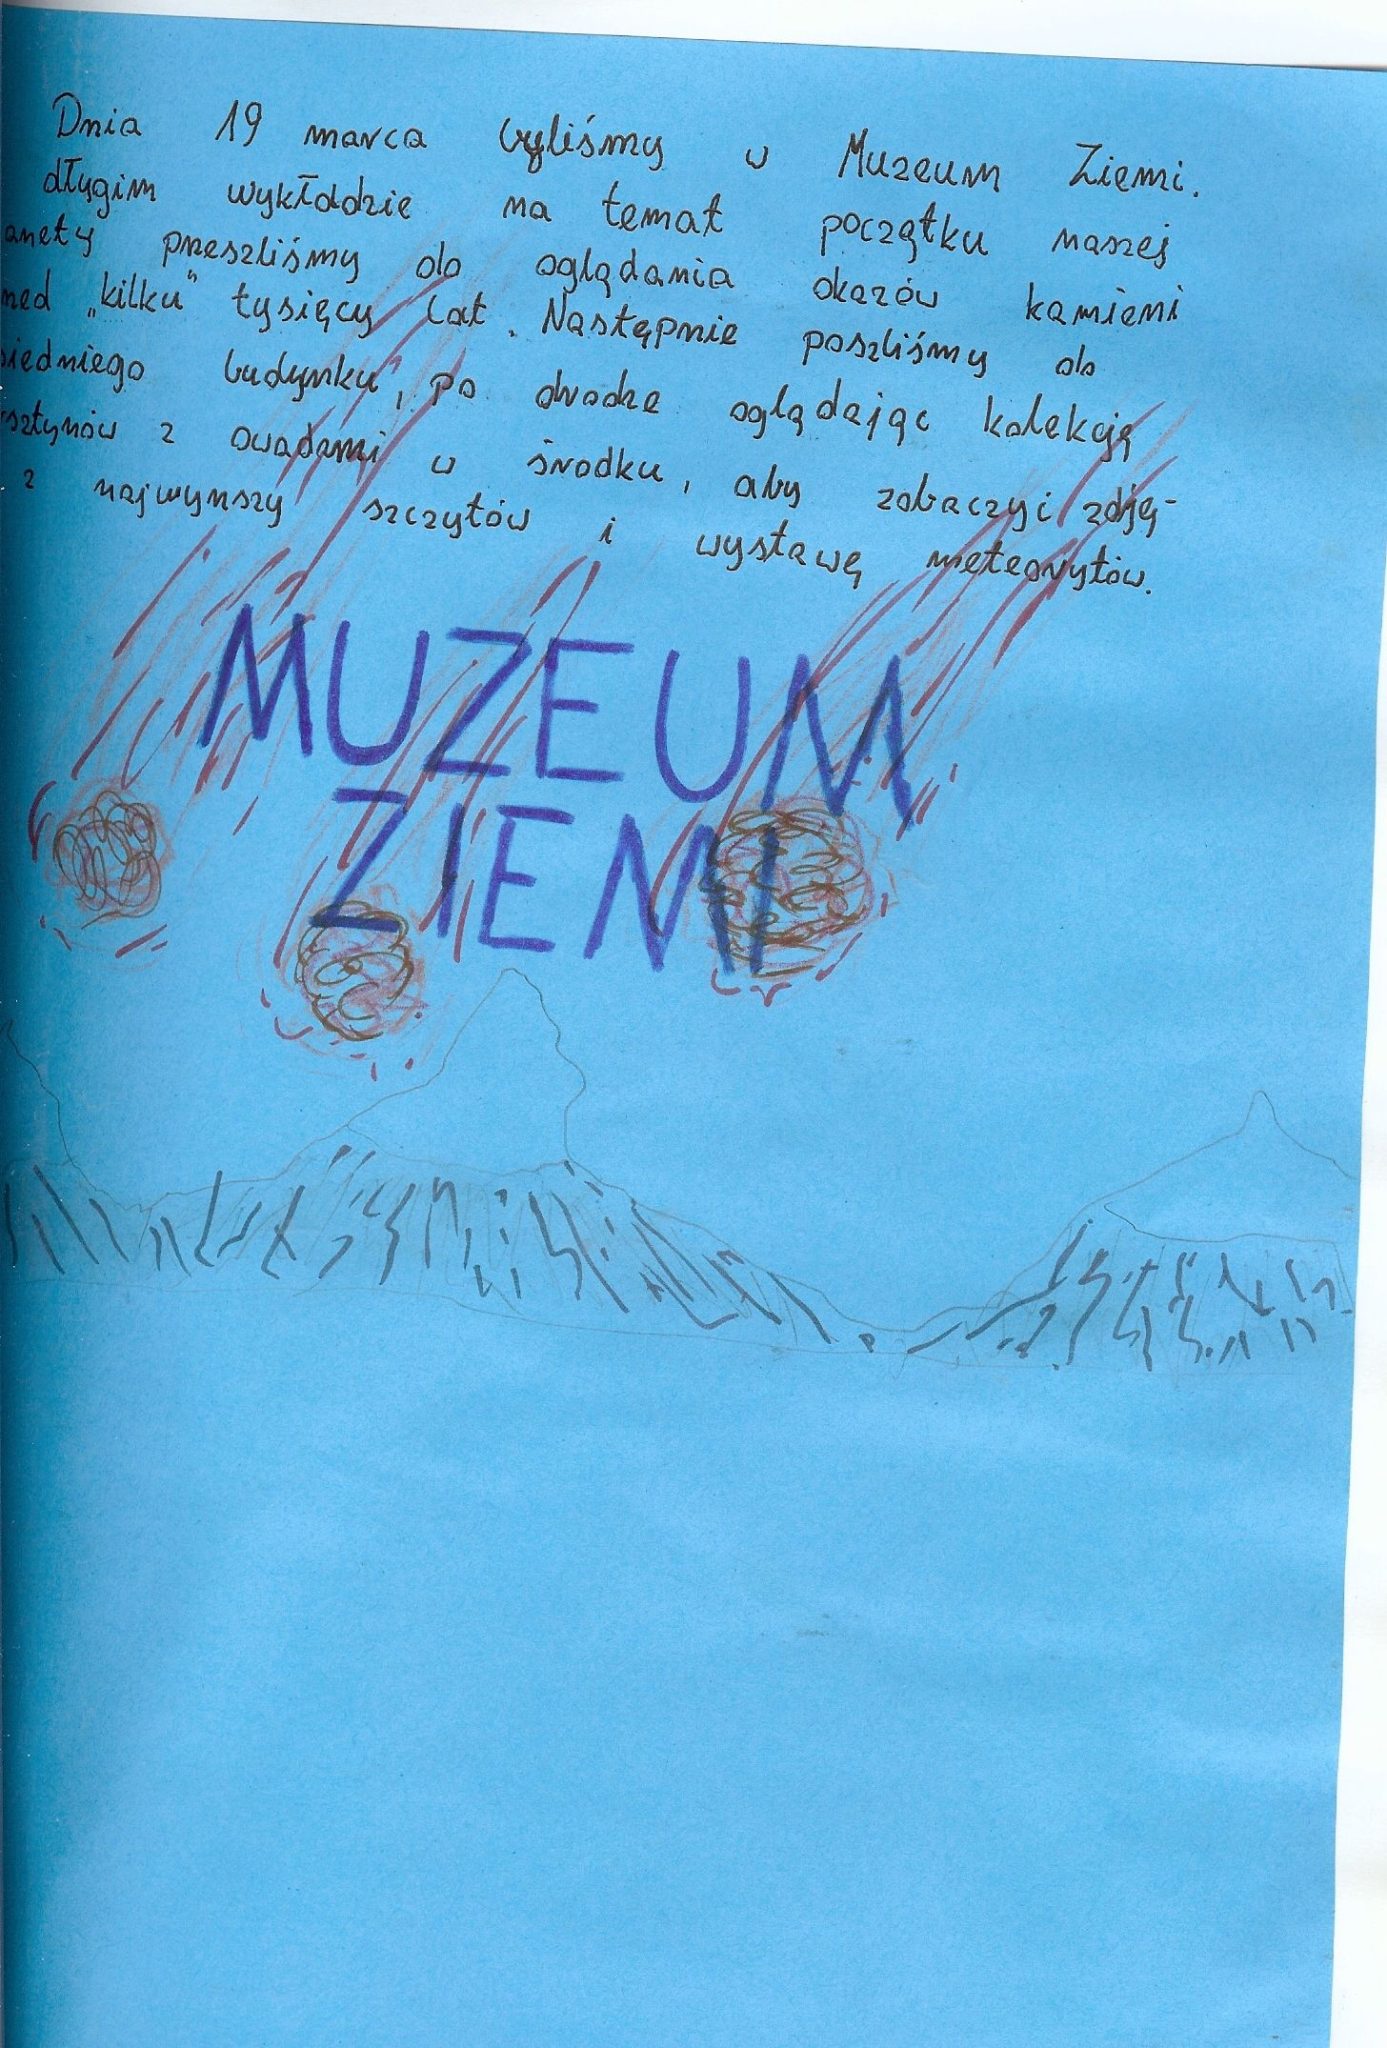 Dnia 19 marca byliśmy w Muzeum Ziemi.
długim wykłodzie na temat początku naszej
anety przeszliśmy do oglądania okazów kamieni
zed „kilku” tysięcy lat. Następnie poszliśmy do
siedniego budynku, po drodze oglądając kolekcją
sztynów z owadami w środku, aby zobaczyć zdję-
z najwynszy szczytów i wystawę meteorytów.
MUZEUM
ZIEMI